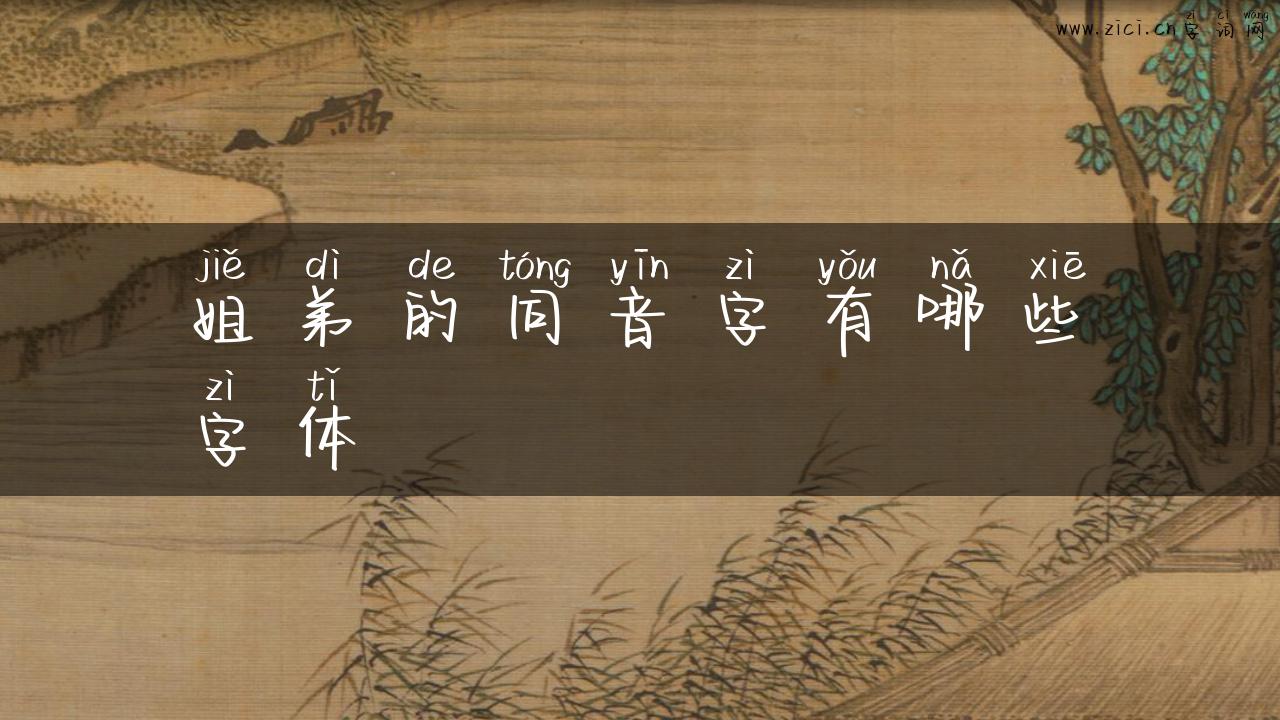 zì cí wǎng
www.zici.cn字 词 网
jiě dì de tóng yīn zì yǒu nǎ xiē
姐 弟 的 同 音 字 有 哪 些
zì tǐ
字 体